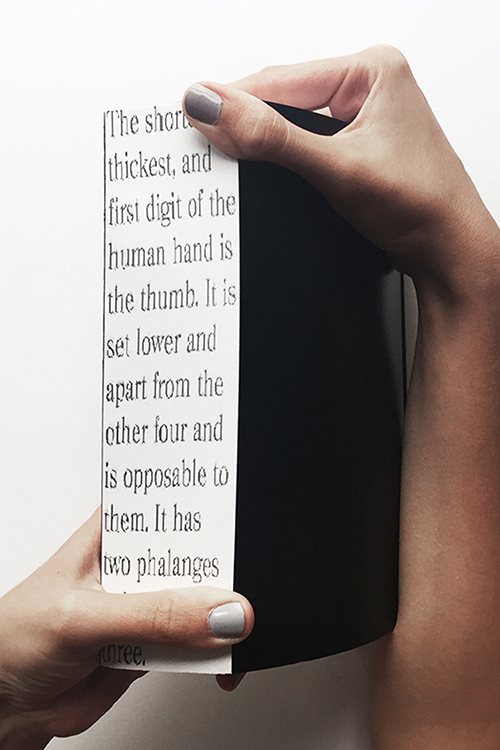 The short
thickest, and
first digit of the
human hand is
the thumb. It is
set lower and
apart from the
other four and
is opposable to
them. It has
two phalanges
three.